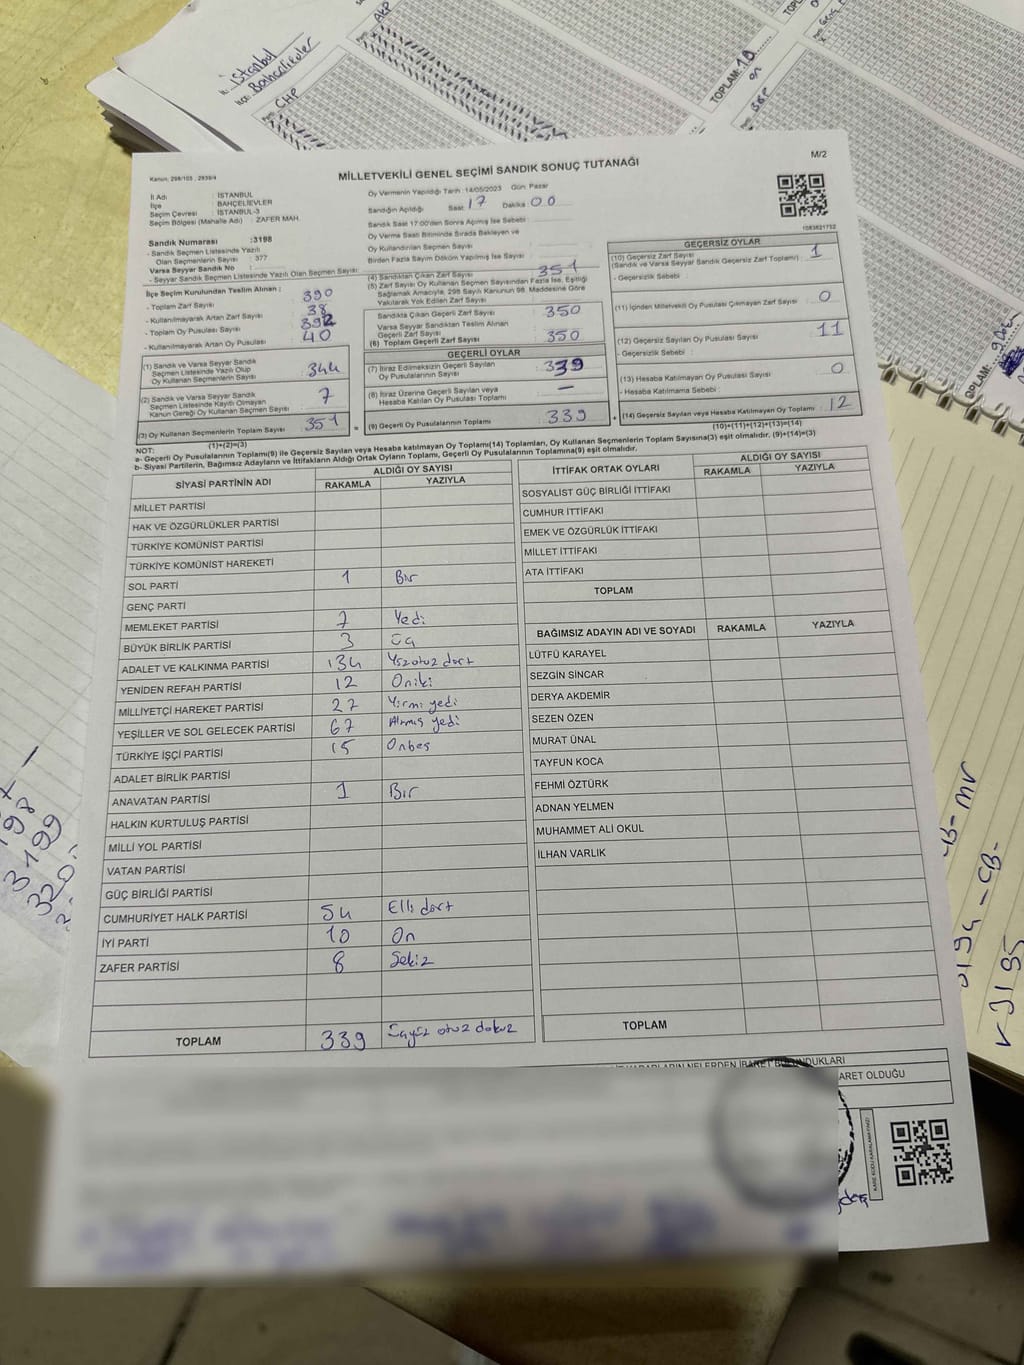 İstanbul
Bahçelievler
CHP
AKP
TOPLAM: 10
on
Kanun, 298/105 , 2839/4
MİLLETVEKİLİ GENEL SEÇİMİ SANDIK SONUÇ TUTANAĞI
M/2
İl Adı : İSTANBUL
İlçe : BAHÇELİEVLER
Seçim Çevresi : İSTANBUL-3
Seçim Bölgesi (Mahalle Adı) : ZAFER MAH.
Oy Vermenin Yapıldığı Tarih : 14/05/2023 Gün: Pazar
Sandığın Açıldığı Saat : 17 Dakika : 00
Sandık Saat 17:00'den Sonra Açılmış İse Sebebi :
Oy Verme Saati Bitiminde Sırada Bekleyen ve
Oy Kullandırılan Seçmen Sayısı
Birden Fazla Sayım Döküm Yapılmış İse Sayısı :
1083821732
Sandık Numarası :3198
- Sandık Seçmen Listesinde Yazılı
Olan Seçmenlerin Sayısı : 377
Varsa Seyyar Sandık No :
- Seyyar Sandık Seçmen Listesinde Yazılı Olan Seçmen Sayısı:
İlçe Seçim Kurulundan Teslim Alınan :
- Toplam Zarf Sayısı 390
- Kullanılmayarak Artan Zarf Sayısı 38
- Toplam Oy Pusulası Sayısı 392
- Kullanılmayarak Artan Oy Pusulası 40
(1) Sandık ve Varsa Seyyar Sandık
Seçmen Listesinde Yazılı Olup
Oy Kullanan Seçmenlerin Sayısı 344
(2) Sandık ve Varsa Seyyar Sandık
Seçmen Listesinde Kayıtlı Olmayan
Kanun Gereği Oy Kullanan Seçmen Sayısı 7
(3) Oy Kullanan Seçmenlerin Toplam Sayısı 351
(1)+(2)=(3)
(4) Sandıktan Çıkan Zarf Sayısı 351
(5) Zarf Sayısı Oy Kullanan Seçmen Sayısından Fazla İse, Eşitliği
Sağlamak Amacıyla, 298 Sayılı Kanunun 98. Maddesine Göre
Yakılarak Yok Edilen Zarf Sayısı :
Sandıkta Çıkan Geçerli Zarf Sayısı 350
Varsa Seyyar Sandıktan Teslim Alınan
Geçerli Zarf Sayısı
(6) Toplam Geçerli Zarf Sayısı 350
GEÇERLİ OYLAR
(7) İtiraz Edilmeksizin Geçerli Sayılan
Oy Pusulalarının Sayısı 339
(8) İtiraz Üzerine Geçerli Sayılan veya
Hesaba Katılan Oy Pusulası Toplamı —
(9) Geçerli Oy Pusulalarının Toplamı 339
GEÇERSİZ OYLAR
(10) Geçersiz Zarf Sayısı
(Sandık ve Varsa Seyyar Sandık Geçersiz Zarf Toplamı) : 1
- Geçersizlik Sebebi :
(11) İçinden Milletvekili Oy Pusulası Çıkmayan Zarf Sayısı 0
(12) Geçersiz Sayılan Oy Pusulası Sayısı 11
- Geçersizlik Sebebi :
(13) Hesaba Katılmayan Oy Pusulası Sayısı 0
- Hesaba Katılmama Sebebi :
(14) Geçersiz Sayılan veya Hesaba Katılmayan Oy Toplamı 12
(10)+(11)+(12)+(13)=(14)
NOT:
a- Geçerli Oy Pusulalarının Toplamı(9) ile Geçersiz Sayılan veya Hesaba katılmayan Oy Toplamı(14) Toplamları, Oy Kullanan Seçmenlerin Toplam Sayısına(3) eşit olmalıdır. (9)+(14)=(3)
b- Siyasi Partilerin, Bağımsız Adayların ve İttifakların Aldığı Ortak Oyların Toplamı, Geçerli Oy Pusulalarının Toplamına(9) eşit olmalıdır.
SİYASİ PARTİNİN ADI
ALDIĞI OY SAYISI
RAKAMLA YAZIYLA
MİLLET PARTİSİ
HAK VE ÖZGÜRLÜKLER PARTİSİ
TÜRKİYE KOMÜNİST PARTİSİ
TÜRKİYE KOMÜNİST HAREKETİ
SOL PARTİ 1 Bir
GENÇ PARTİ
MEMLEKET PARTİSİ 7 Yedi
BÜYÜK BİRLİK PARTİSİ 3 üç
ADALET VE KALKINMA PARTİSİ 134 Yüzotuz dört
YENİDEN REFAH PARTİSİ 12 Oniki
MİLLİYETÇİ HAREKET PARTİSİ 27 Yirmi yedi
YEŞİLLER VE SOL GELECEK PARTİSİ 67 Atmış yedi
TÜRKİYE İŞÇİ PARTİSİ 15 Onbeş
ADALET BİRLİK PARTİSİ
ANAVATAN PARTİSİ 1 Bir
HALKIN KURTULUŞ PARTİSİ
MİLLİ YOL PARTİSİ
VATAN PARTİSİ
GÜÇ BİRLİĞİ PARTİSİ
CUMHURİYET HALK PARTİSİ 54 Elli dört
İYİ PARTİ 10 On
ZAFER PARTİSİ 8 Sekiz
TOPLAM 339 üçyüz otuz dokuz
İTTİFAK ORTAK OYLARI
ALDIĞI OY SAYISI
RAKAMLA YAZIYLA
SOSYALİST GÜÇ BİRLİĞİ İTTİFAKI
CUMHUR İTTİFAKI
EMEK VE ÖZGÜRLÜK İTTİFAKI
MİLLET İTTİFAKI
ATA İTTİFAKI
TOPLAM
BAĞIMSIZ ADAYIN ADI VE SOYADI RAKAMLA YAZIYLA
LÜTFÜ KARAYEL
SEZGİN SİNCAR
DERYA AKDEMİR
SEZEN ÖZEN
MURAT ÜNAL
TAYFUN KOCA
FEHMİ ÖZTÜRK
ADNAN YELMEN
MUHAMMET ALİ OKUL
İLHAN VARLIK
TOPLAM
KARARLARIN NELERDEN İBARET BULUNDUKLARI
ARET OLDUĞU
3199